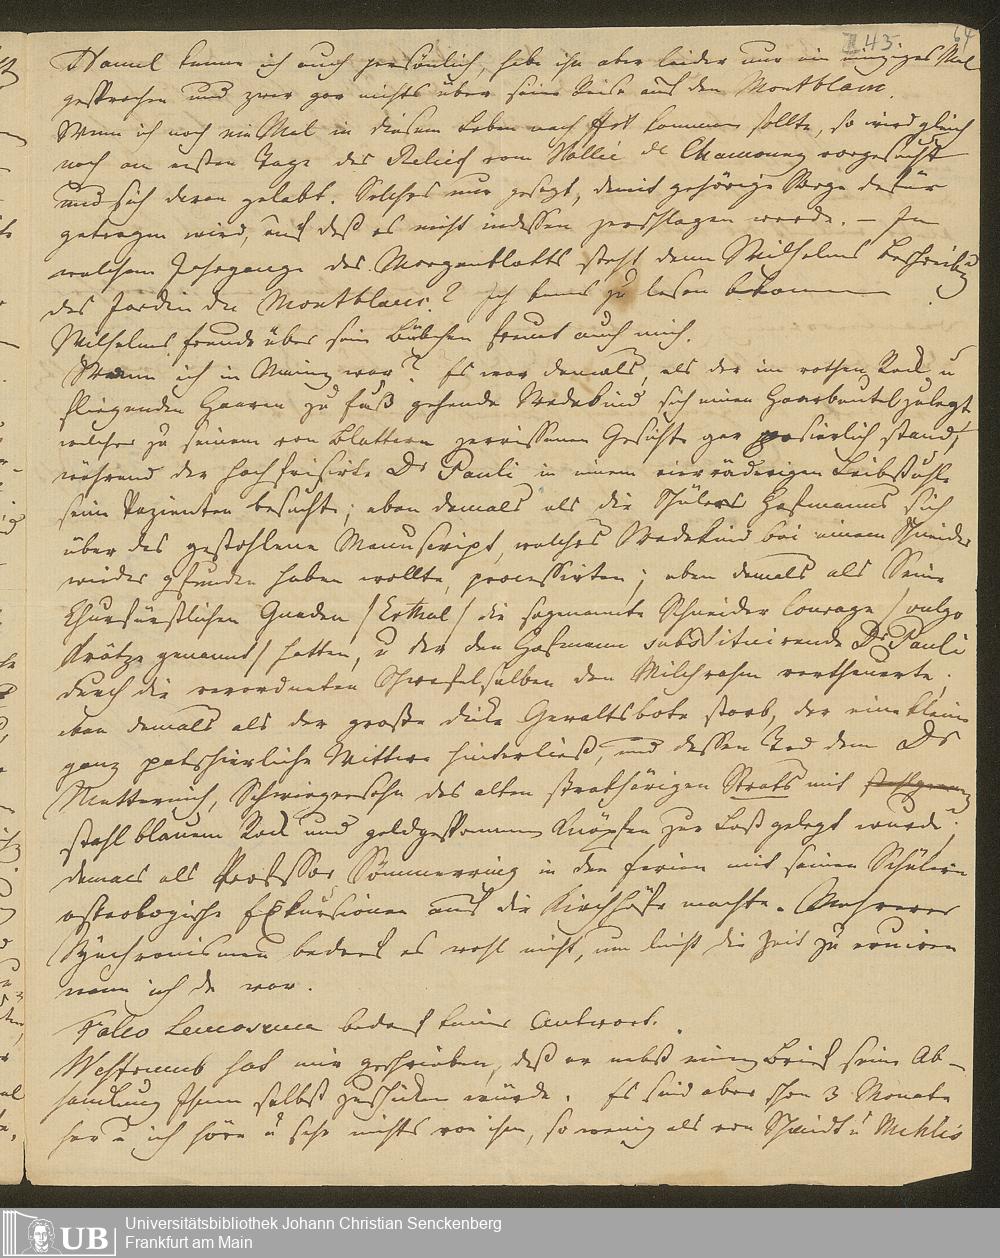 II 43 64
Hamel kenne ich auch persönlich, habe ihn aber leider nur ein einziges Mal
gesprochen und zwar gar nichts über seine Reise auf den Montblanc.
Wenn ich noch ein Mal in diesem Leben nach kommen sollte, so wird gleich
noch am ersten Tage das Relief vom Vallée de Chamouny vorgesucht
und sich daran gelabt. Solches nur gesagt, damit gehörige Sorge dafür
getragen wird, auf daß es nicht indessen zerschlagen werde. – In
welchem Jahrgange des Morgenblatts steht denn Wilhelms Beschreibung
des Jardin du Montblanc? Ich kanns zu lesen bekommen.
Wilhelms Freude über sein Bübchen freut auch mich.
Wann ich in Mainz war? Es war damals, als der im rothen Rock u
fliegenden Haaren zu Fuß gehende Wedekind sich einen Haarbeutel zulegte
welcher zu seinem von Blattern zerrissenen Gesicht gar possierlich stand,
während der hochfrisirte Dr Pauli in einem vierräderigen Leibstuhle
seine Pazienten besuchte; eben damals als die Schüler Hofmanns sich
über das gestohlene Manuscript, welches Wedekind bei einem Schneider
wieder gefunden haben wollte, processirten; eben damals als Seine
Churfürstlichen Gnaden /Erthal/ die sogenannte Schneider Courage /vulgo
Krätze genannt/ hatten, u der den Hofmann substituirende Dr Pauli
durch die verordneten Schwefelsalben den Milchrahm vertheuerte;
eben damals als der große dicke Gewaltsbote starb, der eine kleine
ganz putschierliche Wittwe hinterließ, und dessen Tod dem Dr
Metternich, Schwiegersohn des alten strakhörigen Strats mit
stahlblauem Rock und goldgesponnenen Knöpfen zur Last gelegt wurde;
damals als Professor Sömmerring in den Ferien mit seinen Schülern
osteologische Exkursionen auf die Kirchhöfe machte. Mehrerer
Synchronismen bedarf es wohl nicht, um leicht die Zeit zu eruiren
wann ich da war.
Falco Lemosina bedarf keine Antwort.
Westrumb hat mir geschrieben, daß er nebst einem Brief seine Ab-
handlung Ihnen selbst zuschicken würde. Es sind aber schon 3 Monate
her u ich höre u sehe nichts von ihm, so wenig als von Schmidt u Mehlis
Universitätsbibliothek Johann Christian Senckenberg
Frankfurt am Main
UB